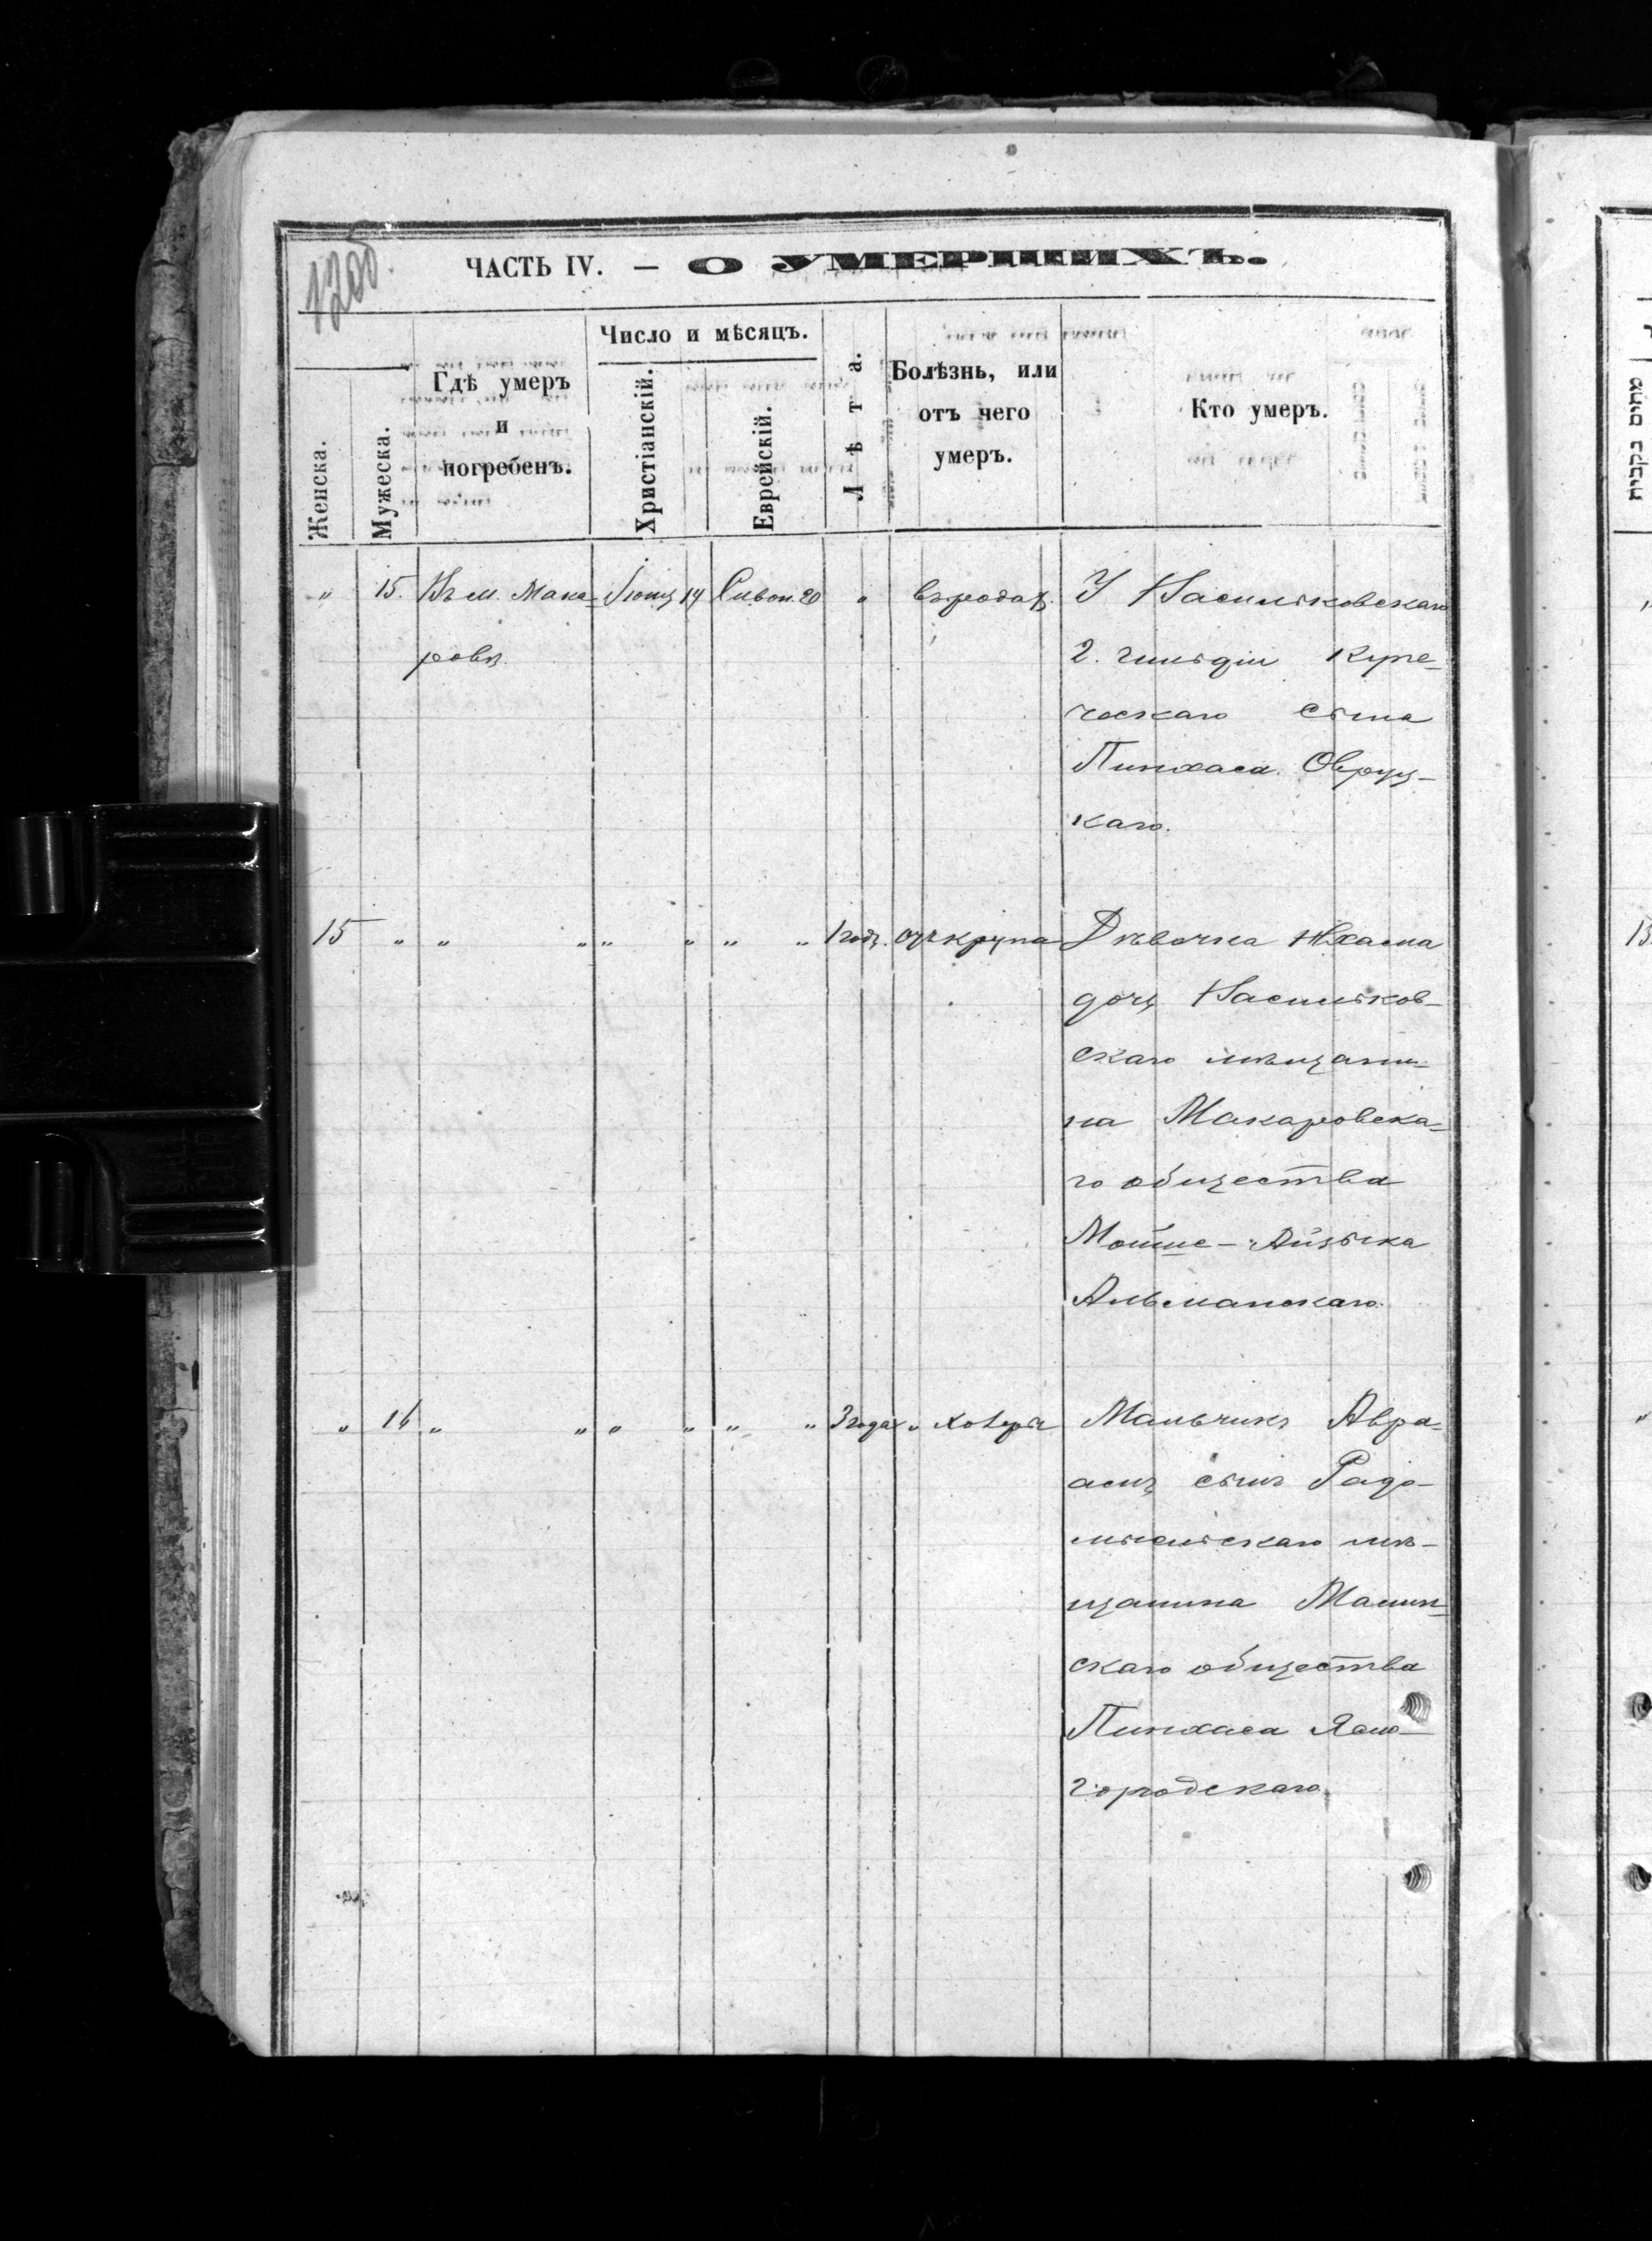 1200
ЧАСТЬ IV. — О УМЕРШИХЪ.
Женска.
Мужеска.
Гдѣ умеръ
и
погребенъ.
Число и мѣсяцъ.
Христіанскій.
Еврейскій.
Лѣта.
Болѣзнь, или
отъ чего
умеръ.
Кто умеръ.
" 15. Въ м. Мака- 14 Сивон. 20 " въ родах. У Васильковскаго
ровѣ. 2. гильдіи купе-
ческаго сына
Пинхаса Овруц-
каго.
15 " " " " " " " 1 годъ. отъ крупа Дѣвочка
дочь Васильков-
скаго мѣщани-
на Макаровска-
го общества
Мошие-Айзыка
Альманскаго.
" 16 " " " " " " 3 года " Мальчикъ Авра-
амъ сынъ Радо-
мысльскаго мѣ-
щанина Малин-
скаго общества
Пинхаса Ясно-
городскаго.
מהים נקבות